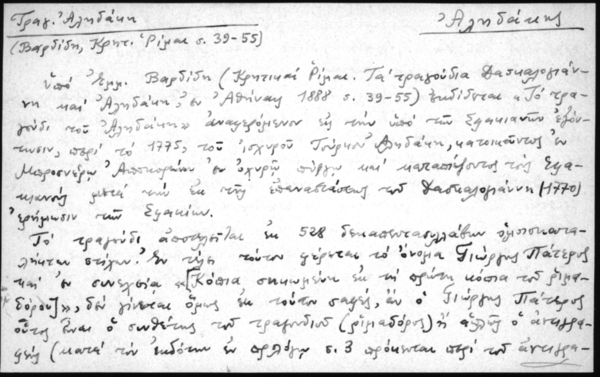 Τραγ. Ἀληδάκη
Ἀληδάκης
(Βαρδίδη, Κρητ. Ῥίμαι σ. 39-55)
Ὑπό Ἐμμ. Βαρδίδη (Κρητικαί Ῥίμαι. Τά τραγούδια Δασκαλογιάν-
νη και Ἀληδάκη, ἐν Ἀθήναις 1888 σ. 39-55) ἐκδίδεται «Τό τρα-
γούδι τοῦ Ἀληδάκη» ἀναφερόμενον εἰς τήν ὑπό τῶν Σφακιανῶν ἐξόν-
τωσιν, περί τό 1775, τοῦ ἰσχυροῦ Τούρκου Ἀληδάκη, κατοικοῦντος ἐν
Ἀποκορώνου ἐν ὀχυρῷ πύργῳ καί καταπιέζοντος τούς Σφα-
κιανούς μετά τήν ἐκ τῆς ἐπαναστάσεως τοῦ Δασκαλογιάννη (1770)
ἐρήμωσιν τῶν Σφακίων.
Τό τραγούδι ἀποτελεῖται ἐκ 528 δεκαπεντασυλλάβων ὁμοιοκατα-
λήκτων στίχων. Ἐν τέλει τούτου φέρεται τό ὄνομα Γιώργης Πάτερος
καί ἐν συνεχείᾳ «[Κόπια σηκωμένη ἐκ τή πρώτη κόπια τοῦ ριμα-
δόρου]», δέν γίνεται ὅμως ἐκ τούτου σαφές, ἄν ὁ Γιώργης Πάτερος
οὗτος εἶναι ὁ συνθέτης τοῦ τραγουδιοῦ (ριμαδόρος) ἤ ἁπλῶς ὁ ἀντιγρα-
φεύς (κατά τόν ἐκδότην ἐν προλόγῳ σ. 3 πρόκειται περί τοῦ ἀντιγρα-